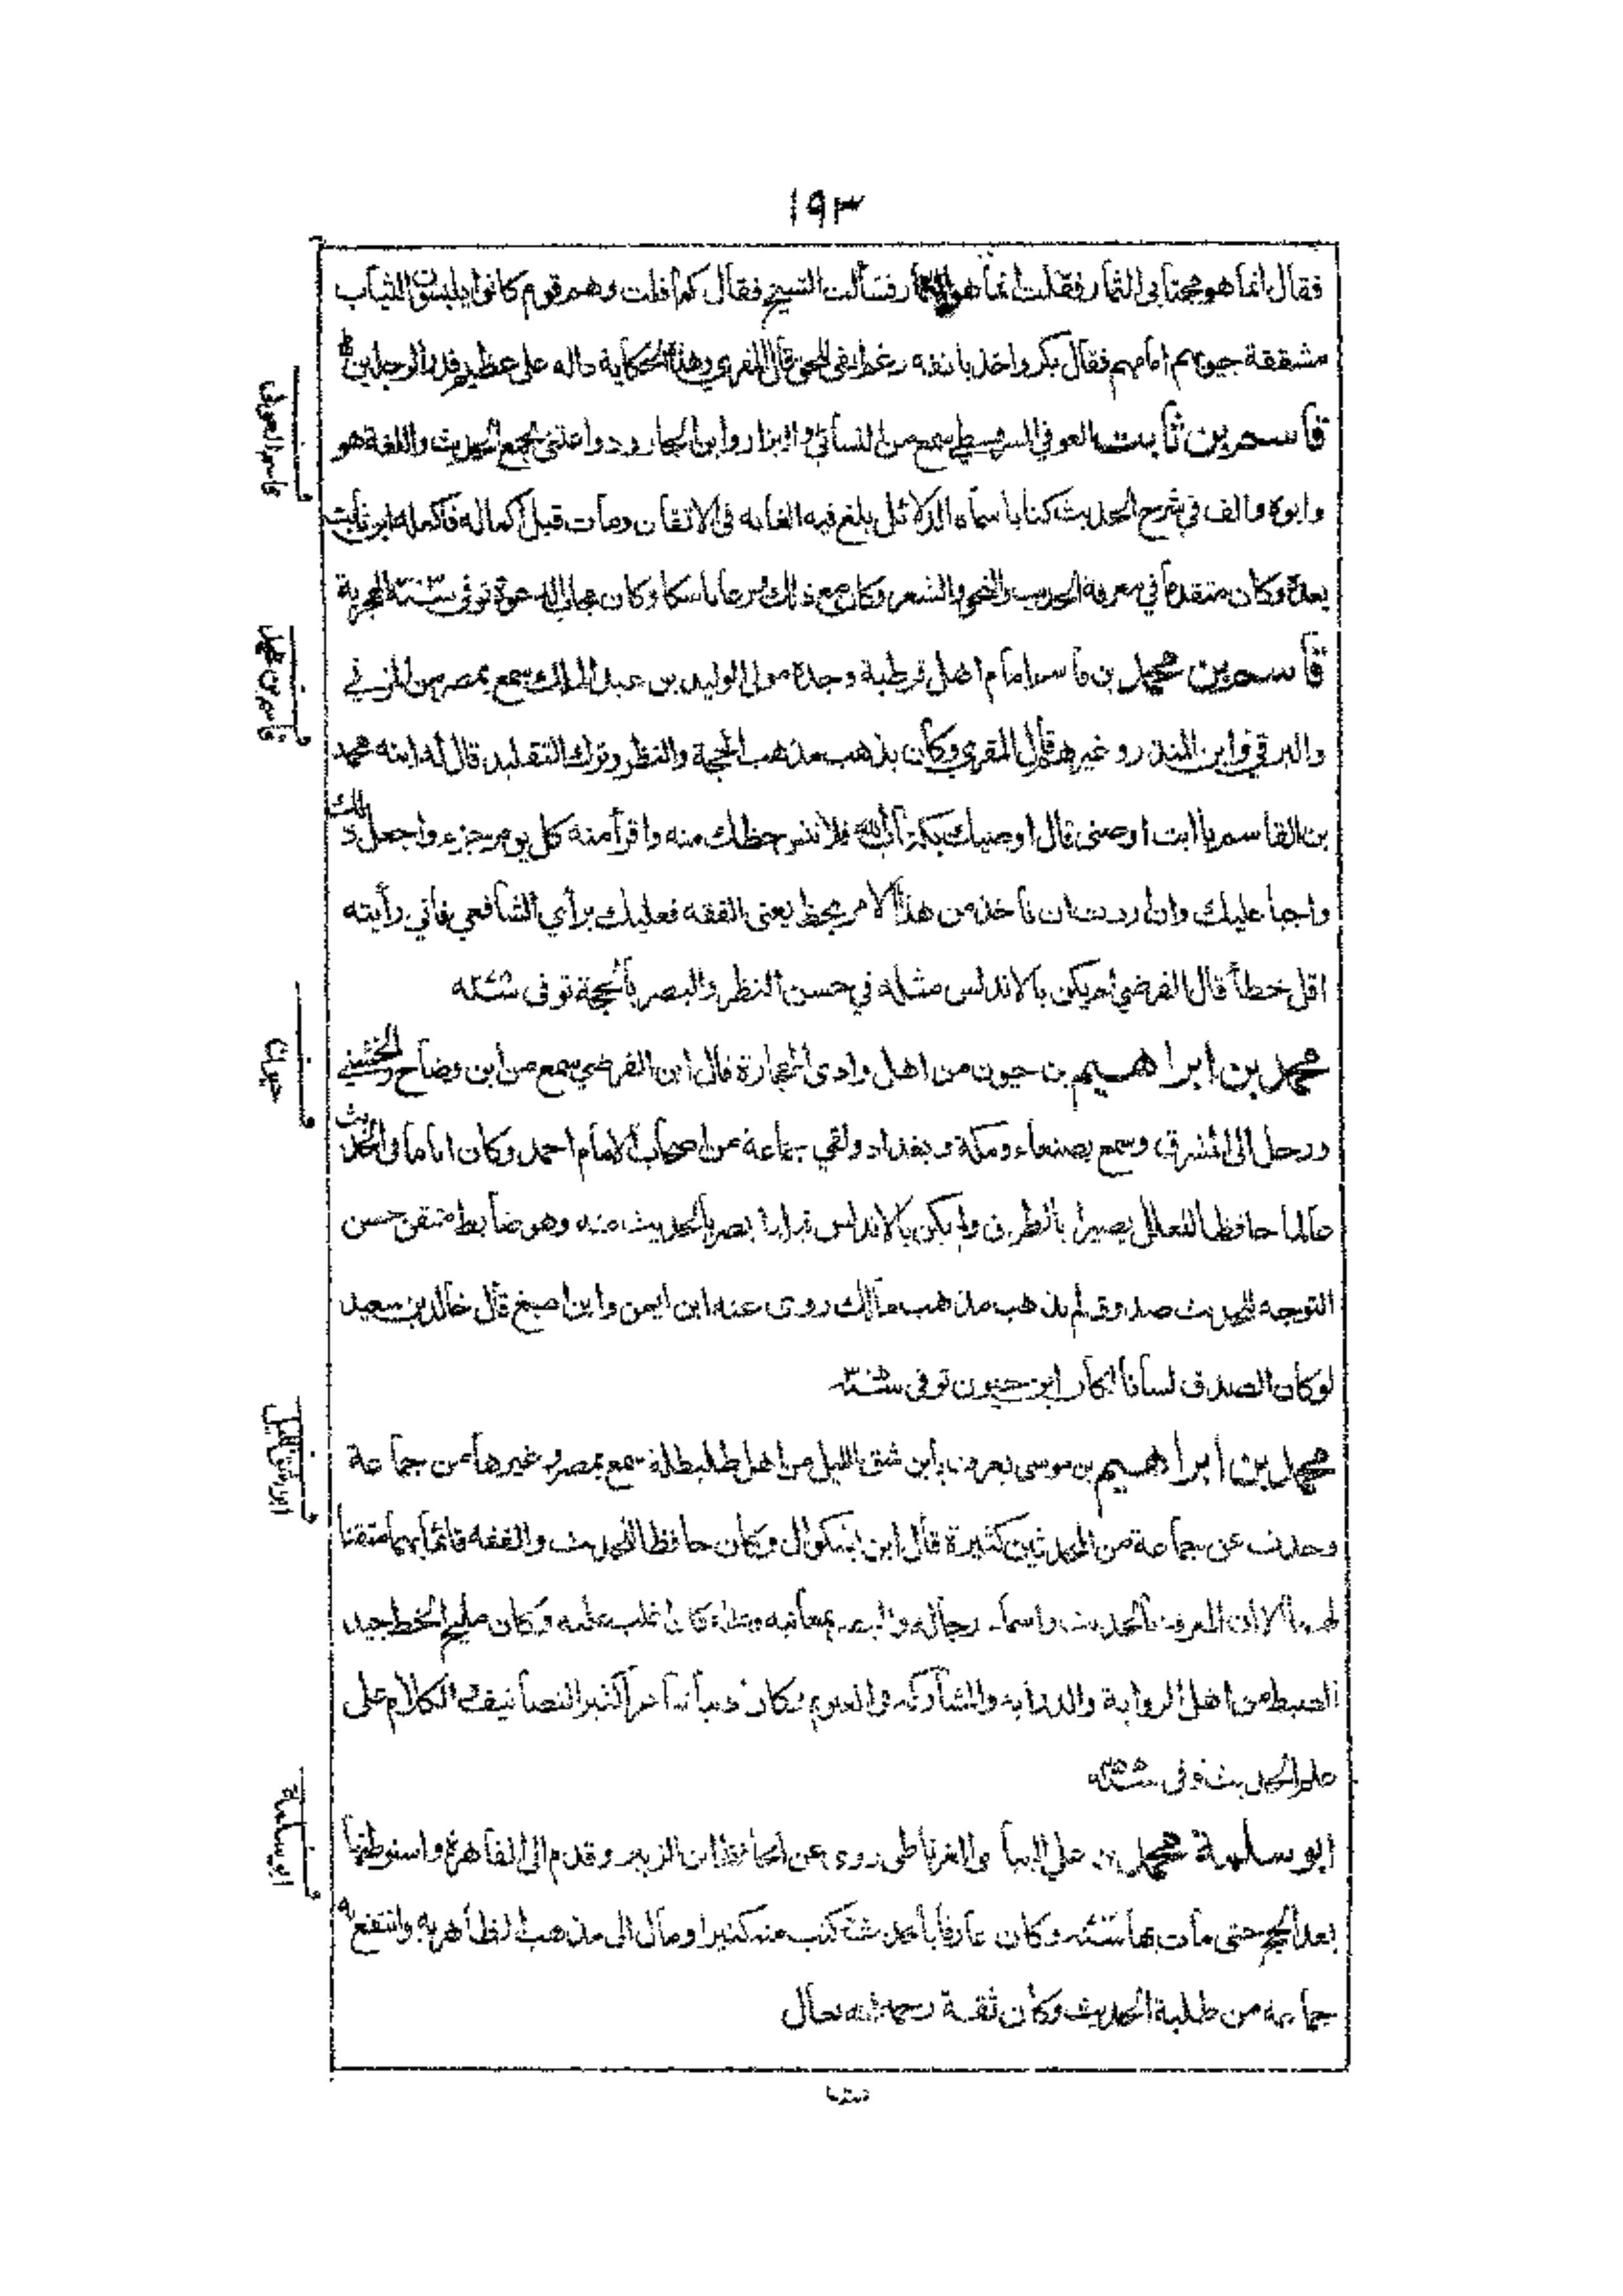 ١٩٣
فقال انما هو مجتابى الثمار فقلت انما هو النمار فسألت الشيخ فقال كما قلت وهم قوم كانوا يلبسون الثياب
مشققة جيوبهم امامهم فقال بكر واخذ بانفه رغم انفى للحق قال المقري وهذه الحكاية داله على عظيم قدر الرجلين
قاسم بن ثابت العوفي السرقسطي سمع من النسائي والبزار وابن الجارود واعتنى بجمع الحديث واللغة هو
وابوه والف في شرح الحديث كتابا سماه الدلائل بلغ فيه الغايه فى الاتقان ومات قبل اكماله فاكمله ابوه ثابت
بعده وكان متقدما في معرفة الحديث والنحو والشعر وكان مع ذلك ورعا ناسكا وكان مجاب الدعوة توفى الهجرية
قاسم بن محمد بن قاسم امام اهل قرطبة وجده مولى الوليد بن عبد الملك سمع بمصر من المزني
والبرقي وابن المنذر وغيرهم قال المقري وكان يذهب مذهب الحجة والنظر وترك التقليد قال له ابنه محمد
بن القاسم يا ابت اوصنى قال اوصيك بكتاب الله فلا تنس حظك منه واقرأ منه كل يوم جزء واجعل ذلك
واجبا عليك وان اردت ان تاخذ من هذا الامر بحظ يعنى الفقه فعليك برأي الشافعي فاني رأيته
اقل خطأ قال الفرضي لم يكن بالاندلس مثله في حسن النظر والبصر بالحجة توفى
محمد بن ابراهيم بن حيون من اهل وادى الحجارة قال ابن الفرضي سمع من ابن وضاح والخشني
ورحل الى المشرق وسمع بصنعاء ومكة وبغداد ولقي جماعة من اصحاب الامام احمد وكان اماما فى الحديث
عالما حافظا للعلل بصيرا بالطرق ولم يكن بالاندلس قبله ابصر بالحديث منه وهو ضابط متقن حسن
التوجه للحديث صدوق لم يذهب مذهب مالك روى عنه ابن ايمن وابن اصبغ قال خالد بن سعيد
لو كان الصدق لسانا لكان ابن حيون توفى
محمد بن ابراهيم بن موسى يعرف بابن شق الليل من اهل طليطلة سمع بمصر وغيرها من جماعة
وحدث عن جماعة من المحدثين كثيرة قال ابن بشكوال وكان حافظا للحديث والفقه قائما بهما متقنا
لهما الا ان المعرفة بالحديث واسماء رجاله والبصر بمعانيه وعلله كان اغلب عليه وكان مليح الخط جيد
الضبط من اهل الرواية والدرايه والمشاركه فى العلوم وكان اديبا شاعرا كثير التصانيف الكلام على
علم الحديث توفى
ابو سلمة محمد بن علي البياسى الغرناطى روى عن الحافظ ابن الزبير وقدم الى القاهرة واستوطنها
بعد الحج حتى مات بها وكان عارفا بالحديث كتب منه كثيرا ومال الى مذهب الظاهريه وانتفع به
جماعه من طلبة الحديث وكان ثقة رحمه الله تعالى
قاسم العوفى
قاسم بن محمد
حيون
ابن شق الليل
ابو سلمة